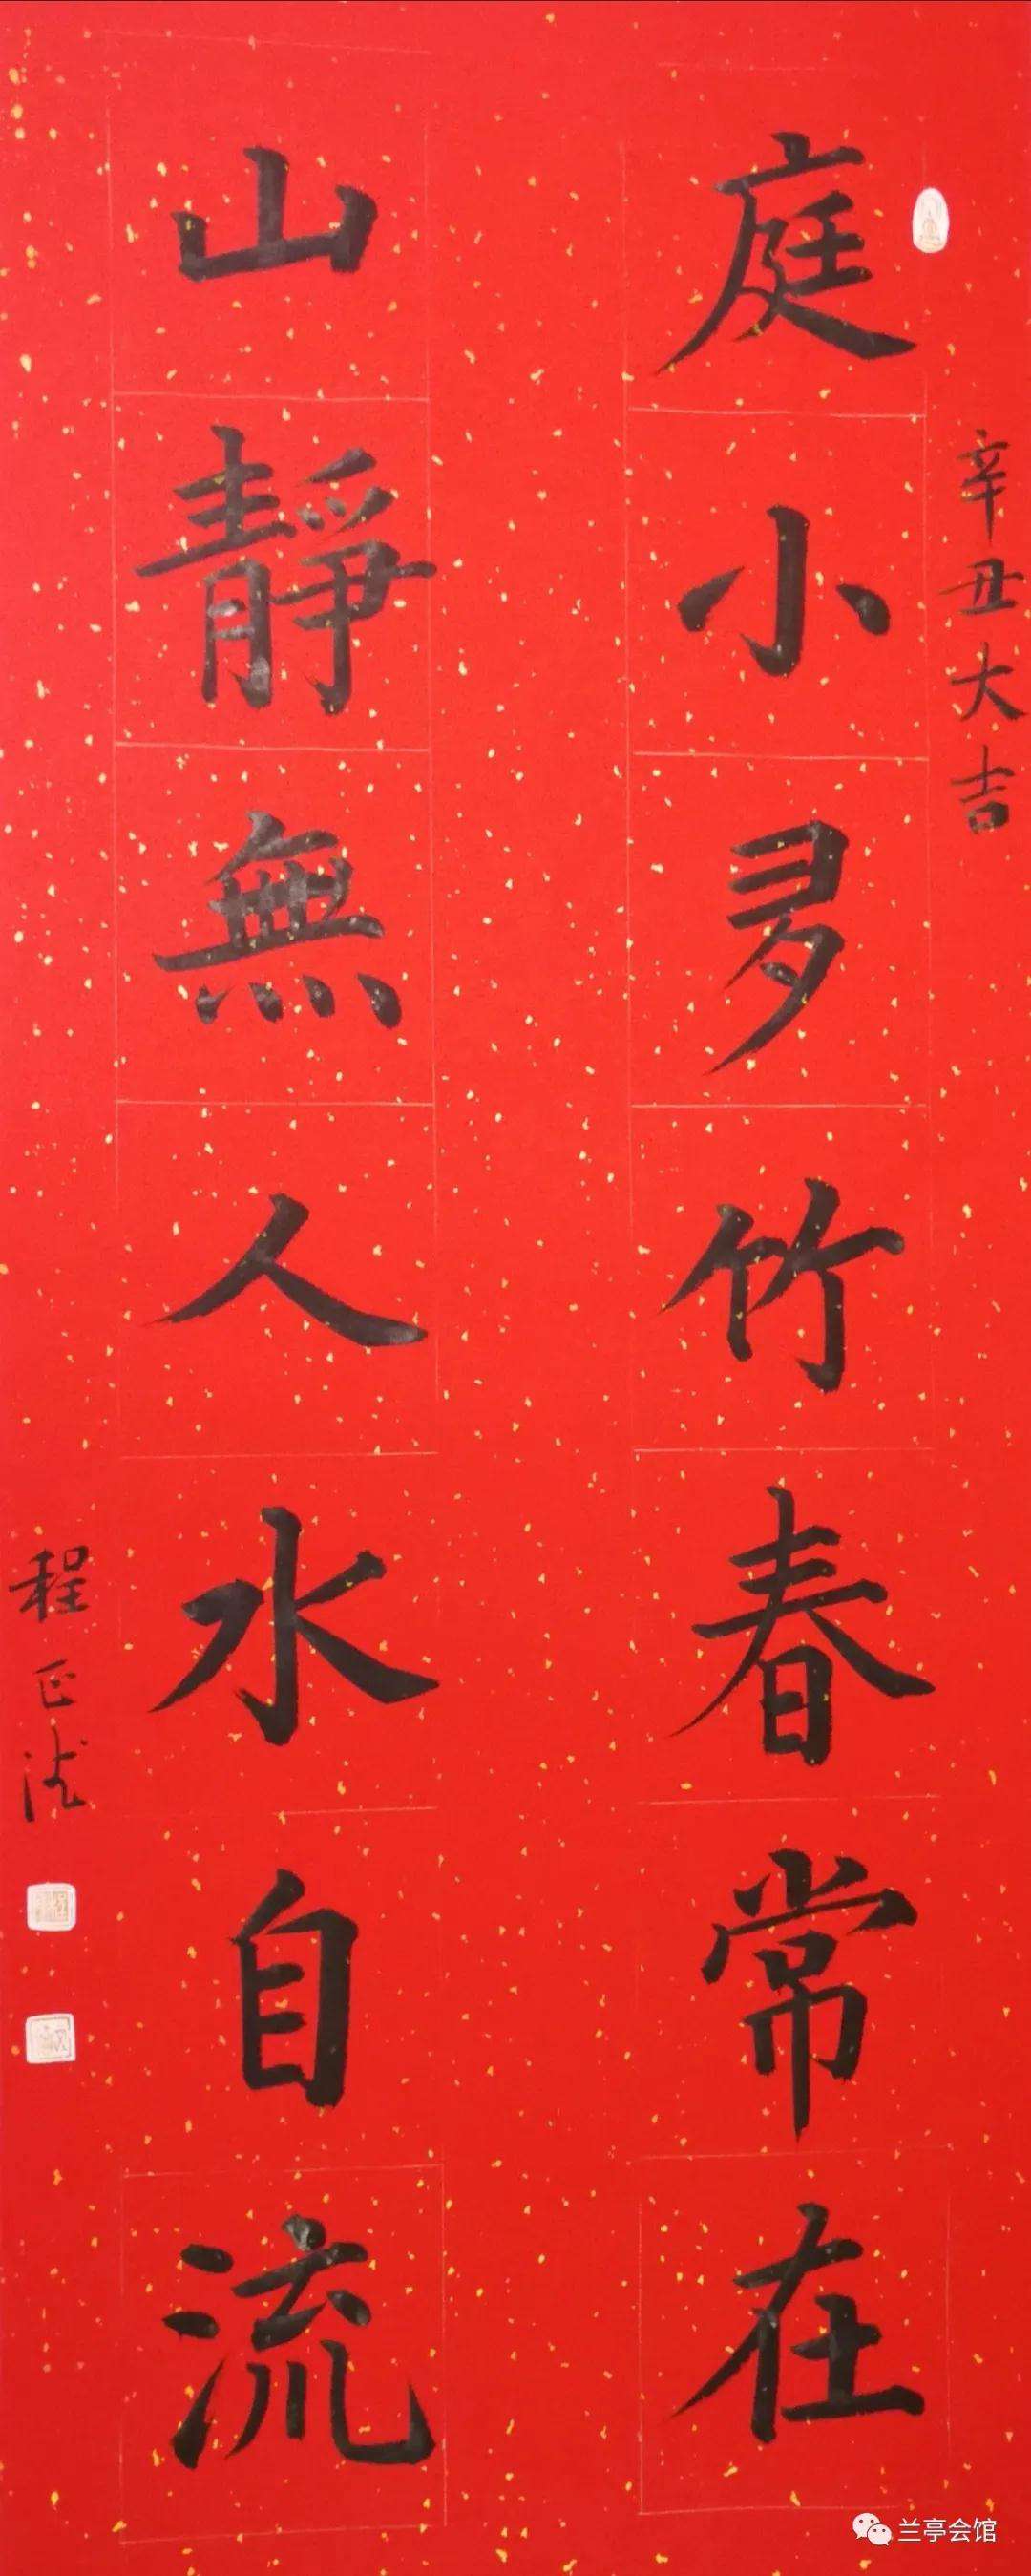 辛丑大吉
庭小多竹春常在
山靜無人水自流
程正法
兰亭会馆